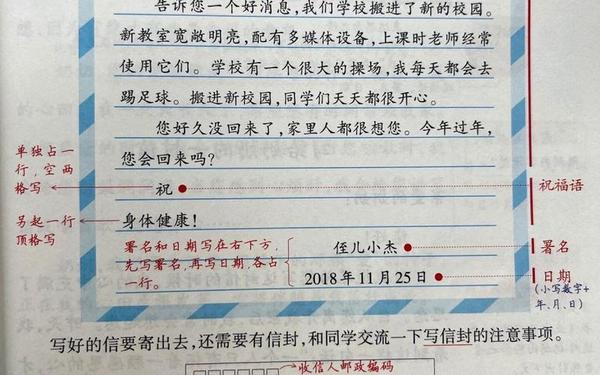 告诉您一个好消息，我们学校搬进了新的校园。
新教室宽敞明亮，配有多媒体设备，上课时老师经常
使用它们。学校有一个很大的操场，我每天都会去
踢足球。搬进新校园，同学们天天都很开心。
您好久没回来了，家里人都很想您。今年过年，
您会回来吗？
单独占一
行，空两
格写
祝
祝福语
另起一行
顶格写
身体健康！
署名和日期写在右下方，
先写署名，再写日期，各占
一行。
侄儿小杰
署名
2018年11月25日
日期
（小写数字+
年、月、日）
写好的信要寄出去，还需要有信封，和同学交流一下写信封的注意事项。
收信人邮政编码